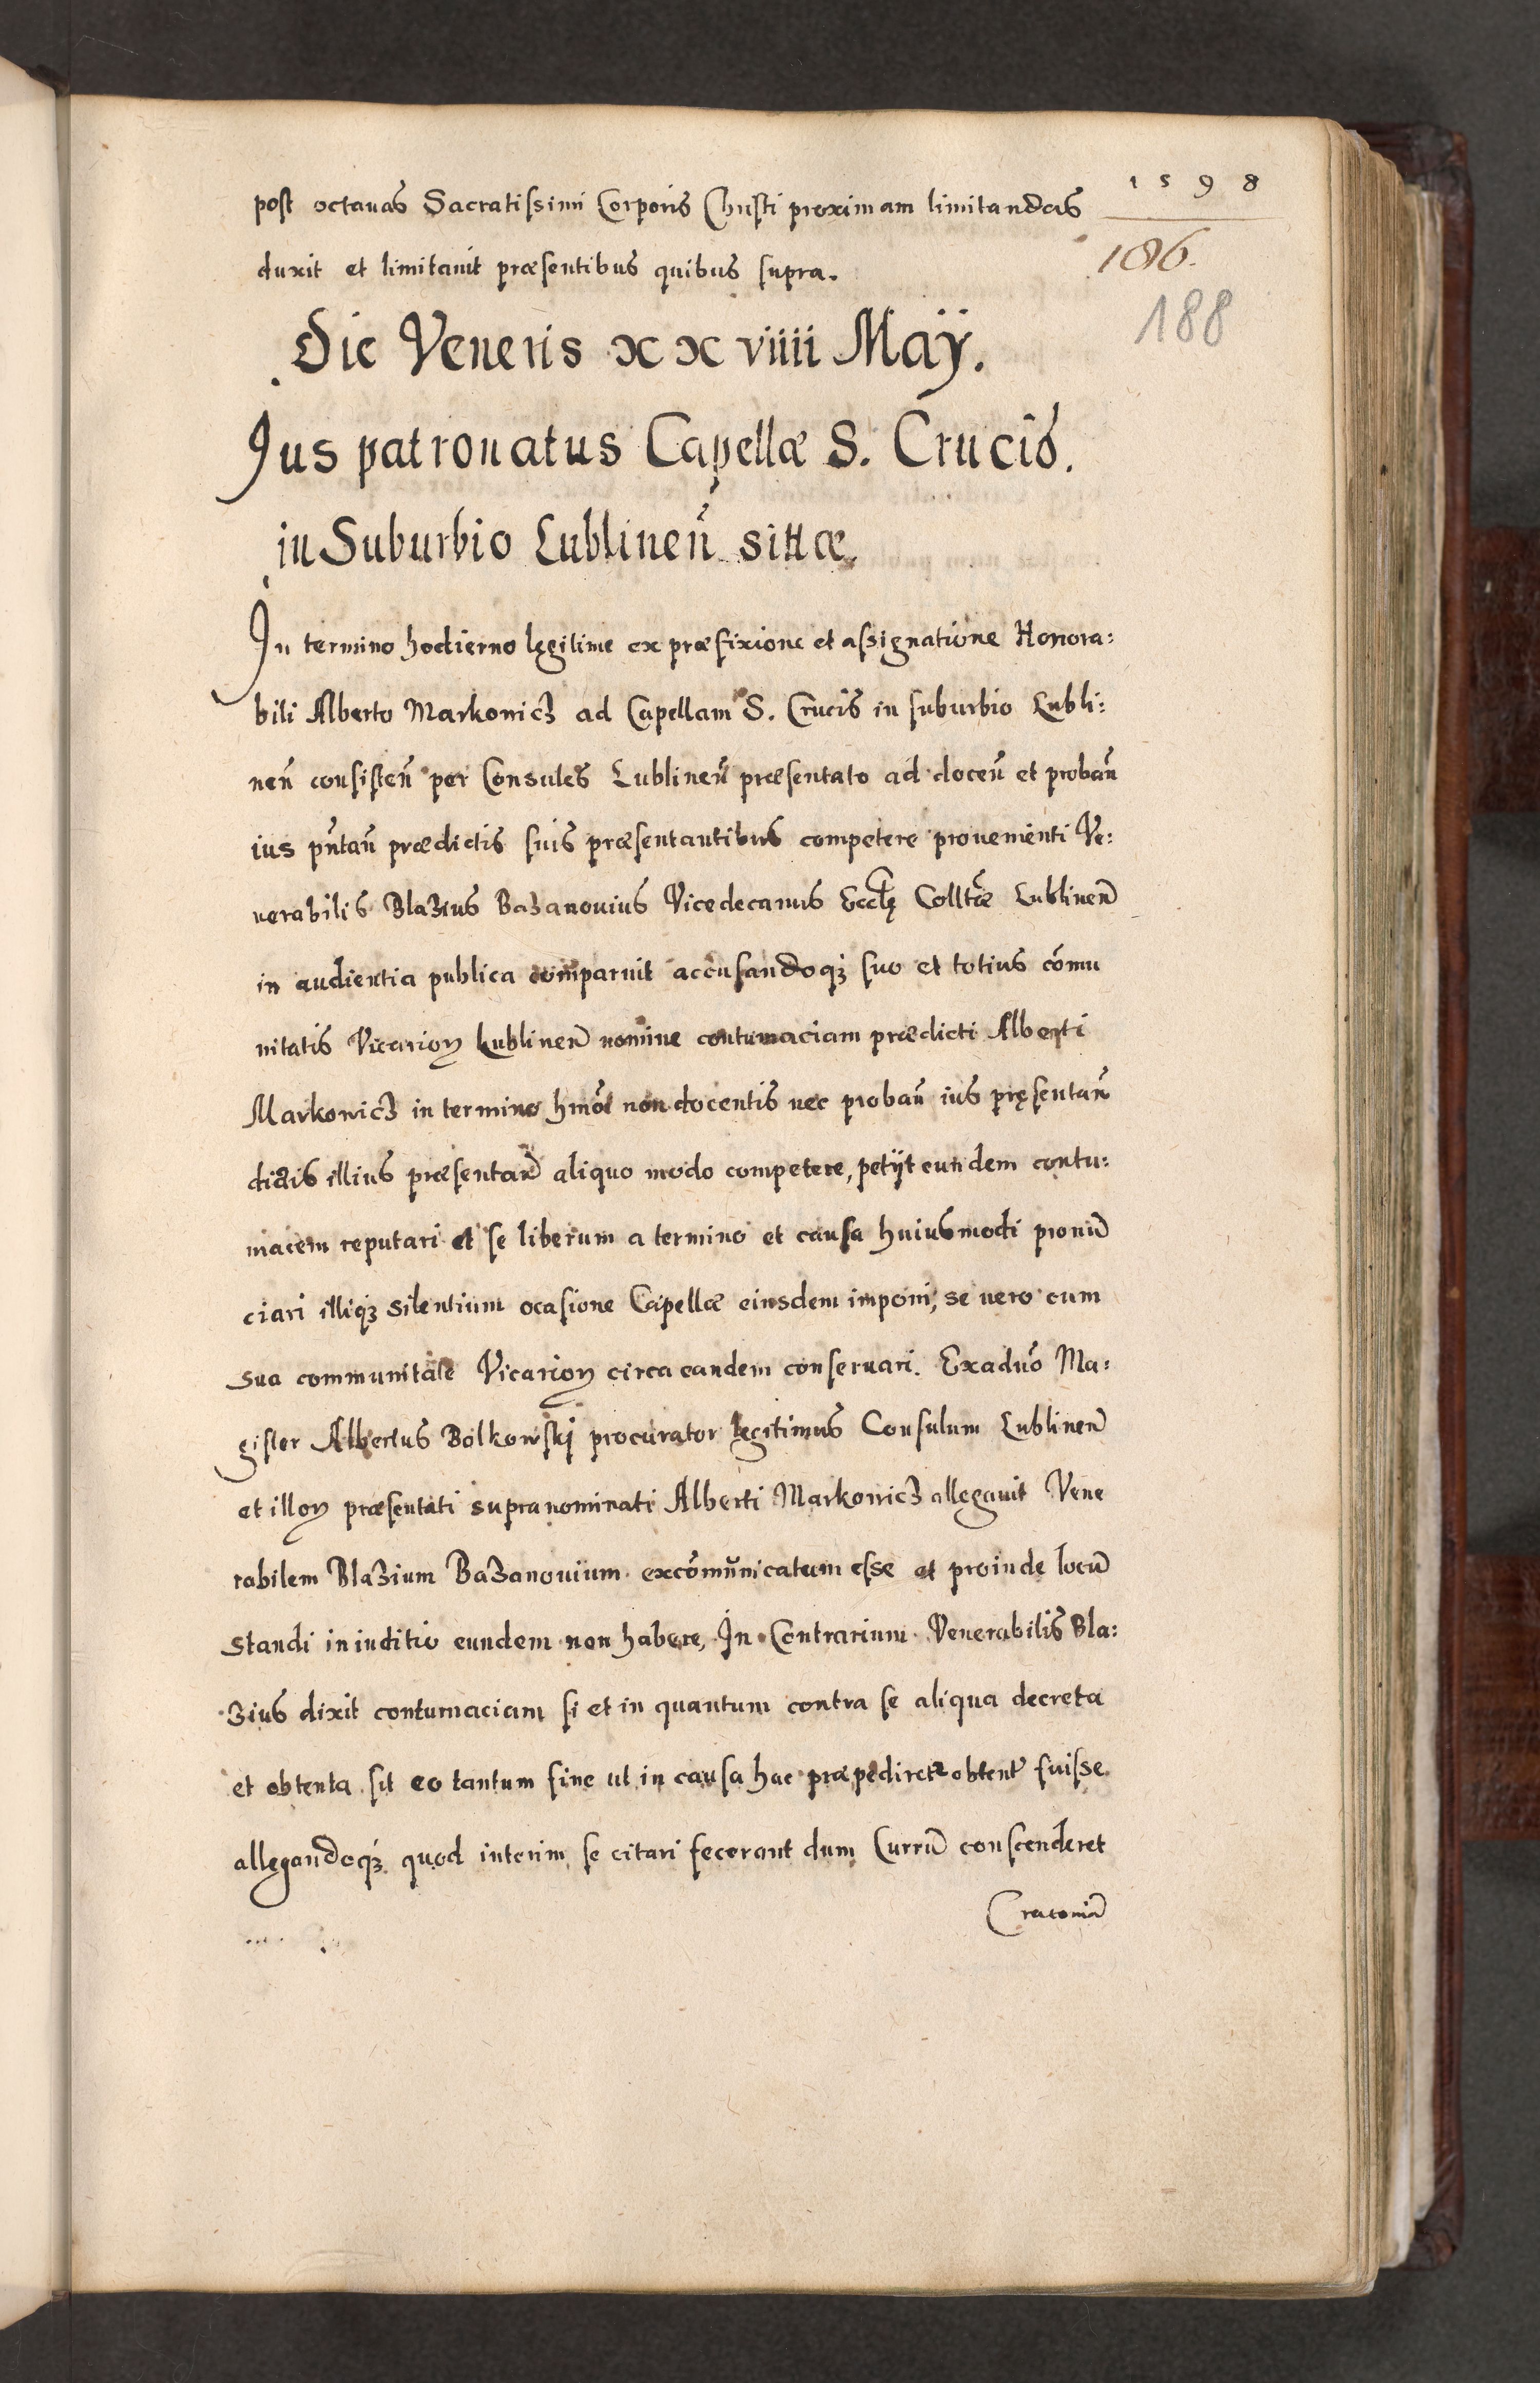 1598
post octauas Sacratissimi Corporis Christi proximam limitandas
186.
duxit et limitauit præsentibus quibus supra.
188
Die Veneris xxviiii Maÿ.
Jus patronatus Capellæ S. Crucis.
in Suburbio Lublinen̄ sittæ.
In termino hodierno legitime ex præfixione et assignatione Honora:
bili Alberto Markowicz ad Capellam S. Crucis in suburbio Lubli:
nen̄ consisten̄ per Consules Lublinen̄ præsentato ad docen̄ et proban̄
ius pn̄tan̄ prædictis suis præsentantibus competere prouenienti Ve:
nerabilis Blazius Bazanouius Vicedecanus Eccl̄ę Colltǣ Lublinen̄
in audientia publica comparuit accusandoqȝ suo et totius cōmu
nitatis Vicarioꝝ Lublinen̄ nomine contumaciam prædicti Alberti
Markowicz in termino hmōi non docentis nec proban̄ ius pręsentan̄
dictis illius præsentan̄ aliquo modo competere, petijt eundem contu:
macem reputari et se liberum a termino et causa huiusmodi pronū
ciari illiqȝ silentium ocasione Capellæ eiusdem imponi, se uero cum
sua communitate Vicarioꝝ circa eandem conseruari. Exaduō Ma:
gister Albertus Bolkowskj procurator legitimus Consulum Lublinen̄
et illoꝝ præsentati supranominati Alberti Markowicz allegauit Vene
rabilem Blazium Bazanouium excōmunicatum esse et proinde locū
standi in iuditio eundem non habere, In Contrarium Venerabilis Bla:
zius dixit contumaciam si et in quantum contra se aliqua decreta
et obtenta sit eo tantum fine ut in causa hac præpediretꝛ obtent̄ fuisse
allegandoqȝ quod interim se citari fecerant dum Currū conscenderet
Cracouiā